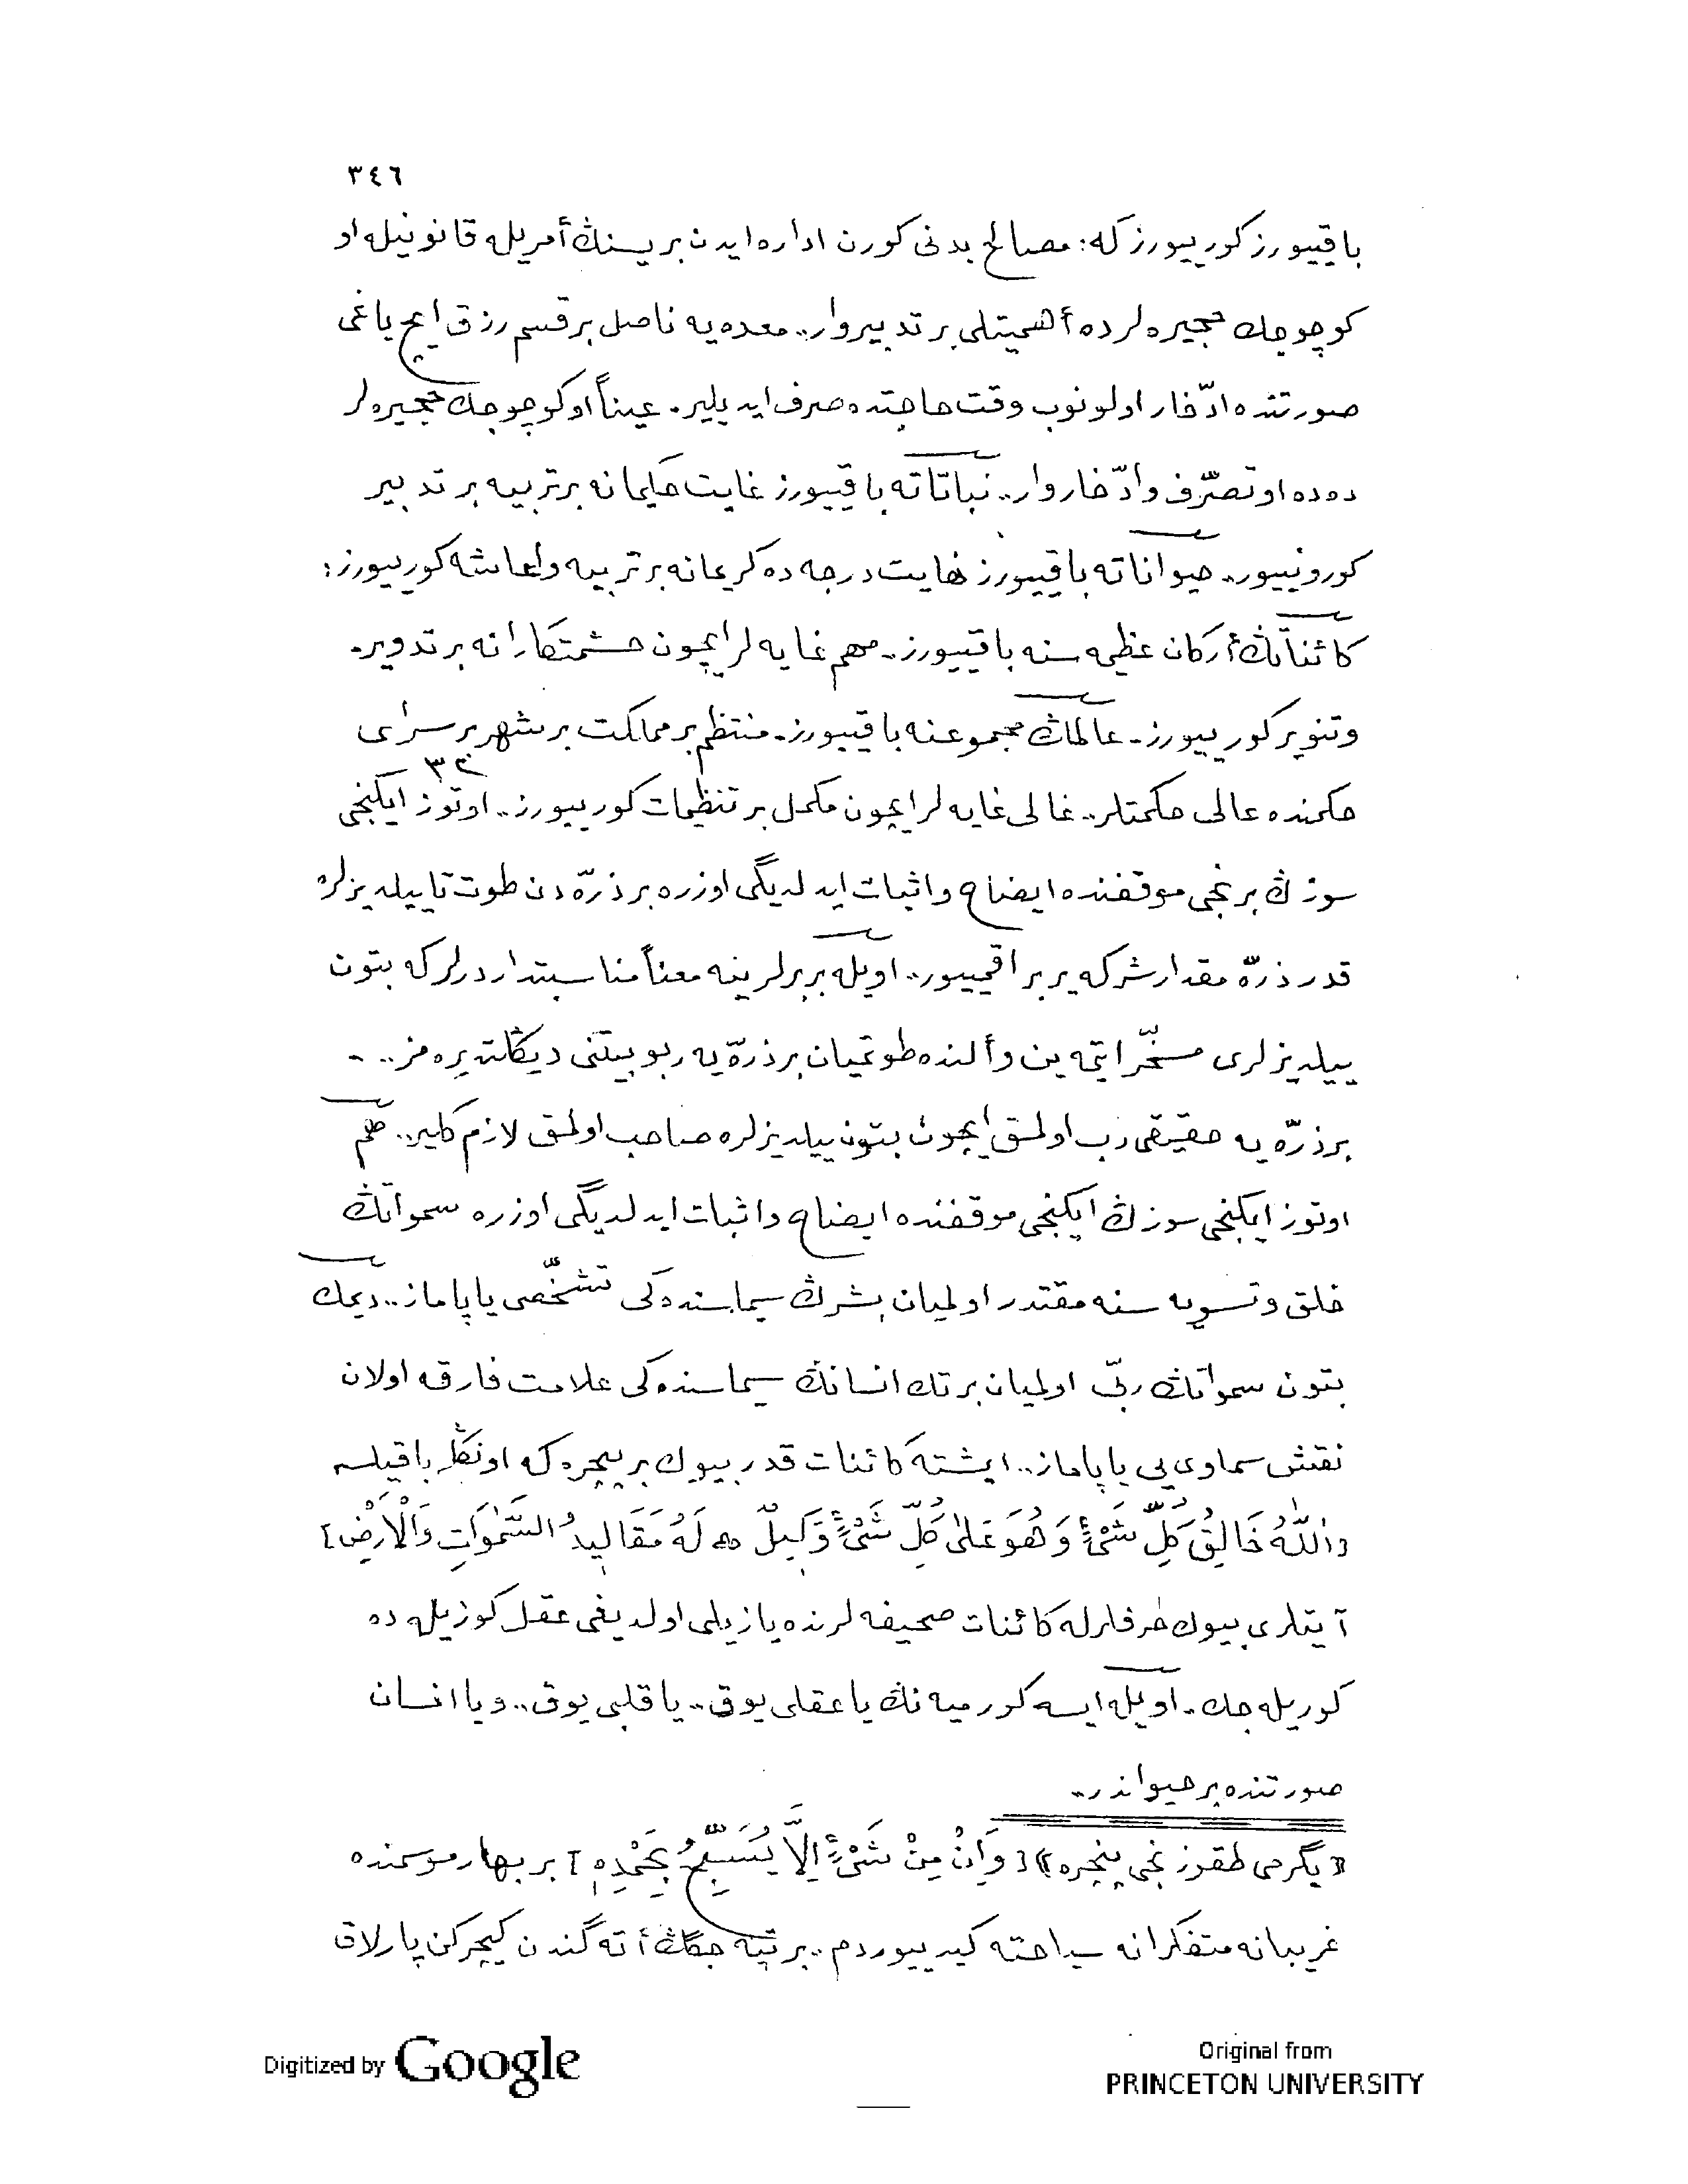 ٣٤٦
باقييورز كورييورز كه: مصالح بدنى كورن اداره ايدن بريسنڭ أمريله قانونيله او
كوچوجك حجيره لرده أهميتلى بر تدبير وار.. معده يه ناصل بر قسم رزق ايچ ياغى
صورتنده ادّخار اولونوب وقت حاجتده صرف ايديلير. عيناً او كوچوجك حجيره لر
ده ده او تصرّف وادّخار وار.. نباتاته باقييورز غايت حكيمانه بر تربيه بر تدبير
كورونييور.. حيواناته باقييورز نهايت درجه ده كريمانه بر تربيه واعاشه كورييورز:
كائناتڭ أركان عظيمه سنه باقييورز.. مهم غايه لر ايچون حشمتكارانه بر تدوير.
وتنوير كورييورز. عالمڭ مجموعنه باقييورز. منتظم بر مملكت بر شهر بر سراى
حكمنده عالى حكمتلر.. غالى غايه لر ايچون مكمل بر تنظيمات كورييورز.. اوتوز ايكنجى
٣٢
سوزڭ برنجى موقفنده ايضاح واثبات ايدلديگى اوزره بر ذرّه دن طوت تا ييلديزلره
قدر ذرّه مقدار شركه ير براقمييور.. اويله بربرلرينه معناً مناسبتداردرلر كه بتون
ييلديزلرى مسخّر ايتمه ين وألنده طوتميان بر ذرّه يه ربوبيتنى ديڭلتديره مز..
بر ذرّه يه حقيقى رب اولمق ايچون بتون ييلديزلره صاحب اولمق لازم كلير.. هم
اوتوز ايكنجى سوزڭ ايكنجى موقفنده ايضاح واثبات ايدلديگى اوزره سمواتڭ
خلق وتسويه سنه مقتدر اولميان بشرڭ سيماسنده كى تشخّصى ياپاماز.. ديمك
بتون سمواتڭ ربّى اولميان بر تك انسانڭ سيماسنده كى علامت فارقه اولان
نقش سماوى يى ياپاماز.. ايشته كائنات قدر بيوك بر پنجره كه اونڭله باقيلسه
[اَللّٰهُ خَالِقُ كُلِّ شَىْءٍ وَهُوَ عَلٰى كُلِّ شَىْءٍ وَكِيلٌ ۞ لَهُ مَقَالِيدُ السَّمٰوَاتِ وَالْاَرْضِ]
آيتلرى بيوك حرفلرله كائنات صحيفه لرنده يازيلى اولديغى عقل كوزيله ده
كوريله جك. اويله ايسه كورميه نڭ يا عقلى يوق.. يا قلبى يوق.. ويا انسان
صورتنده بر حيواندر..
«يگرمى طقوزنجى پنجره» [وَاِنْ مِنْ شَىْءٍ اِلَّا يُسَبِّحُ بِحَمْدِهِ] بر بهار موسمنده
غريبانه متفكرانه سياحته كيدييوردم.. بر تپه جگڭ أته گندن كچركن پارلاق
Digitized by Google
Original from
PRINCETON UNIVERSITY